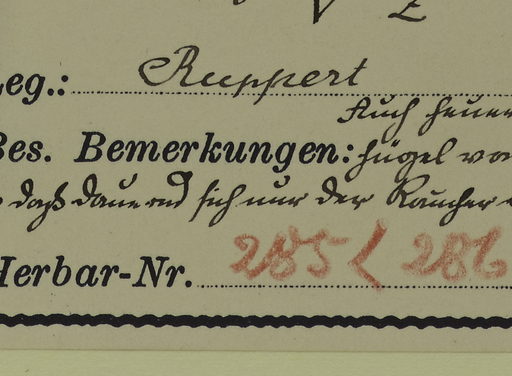 eg.: Ruppert
Auch heuer
Bes. Bemerkungen: hügel vo
daß dauernd sich nur der Raucher
Herbar-Nr. 285 < 286